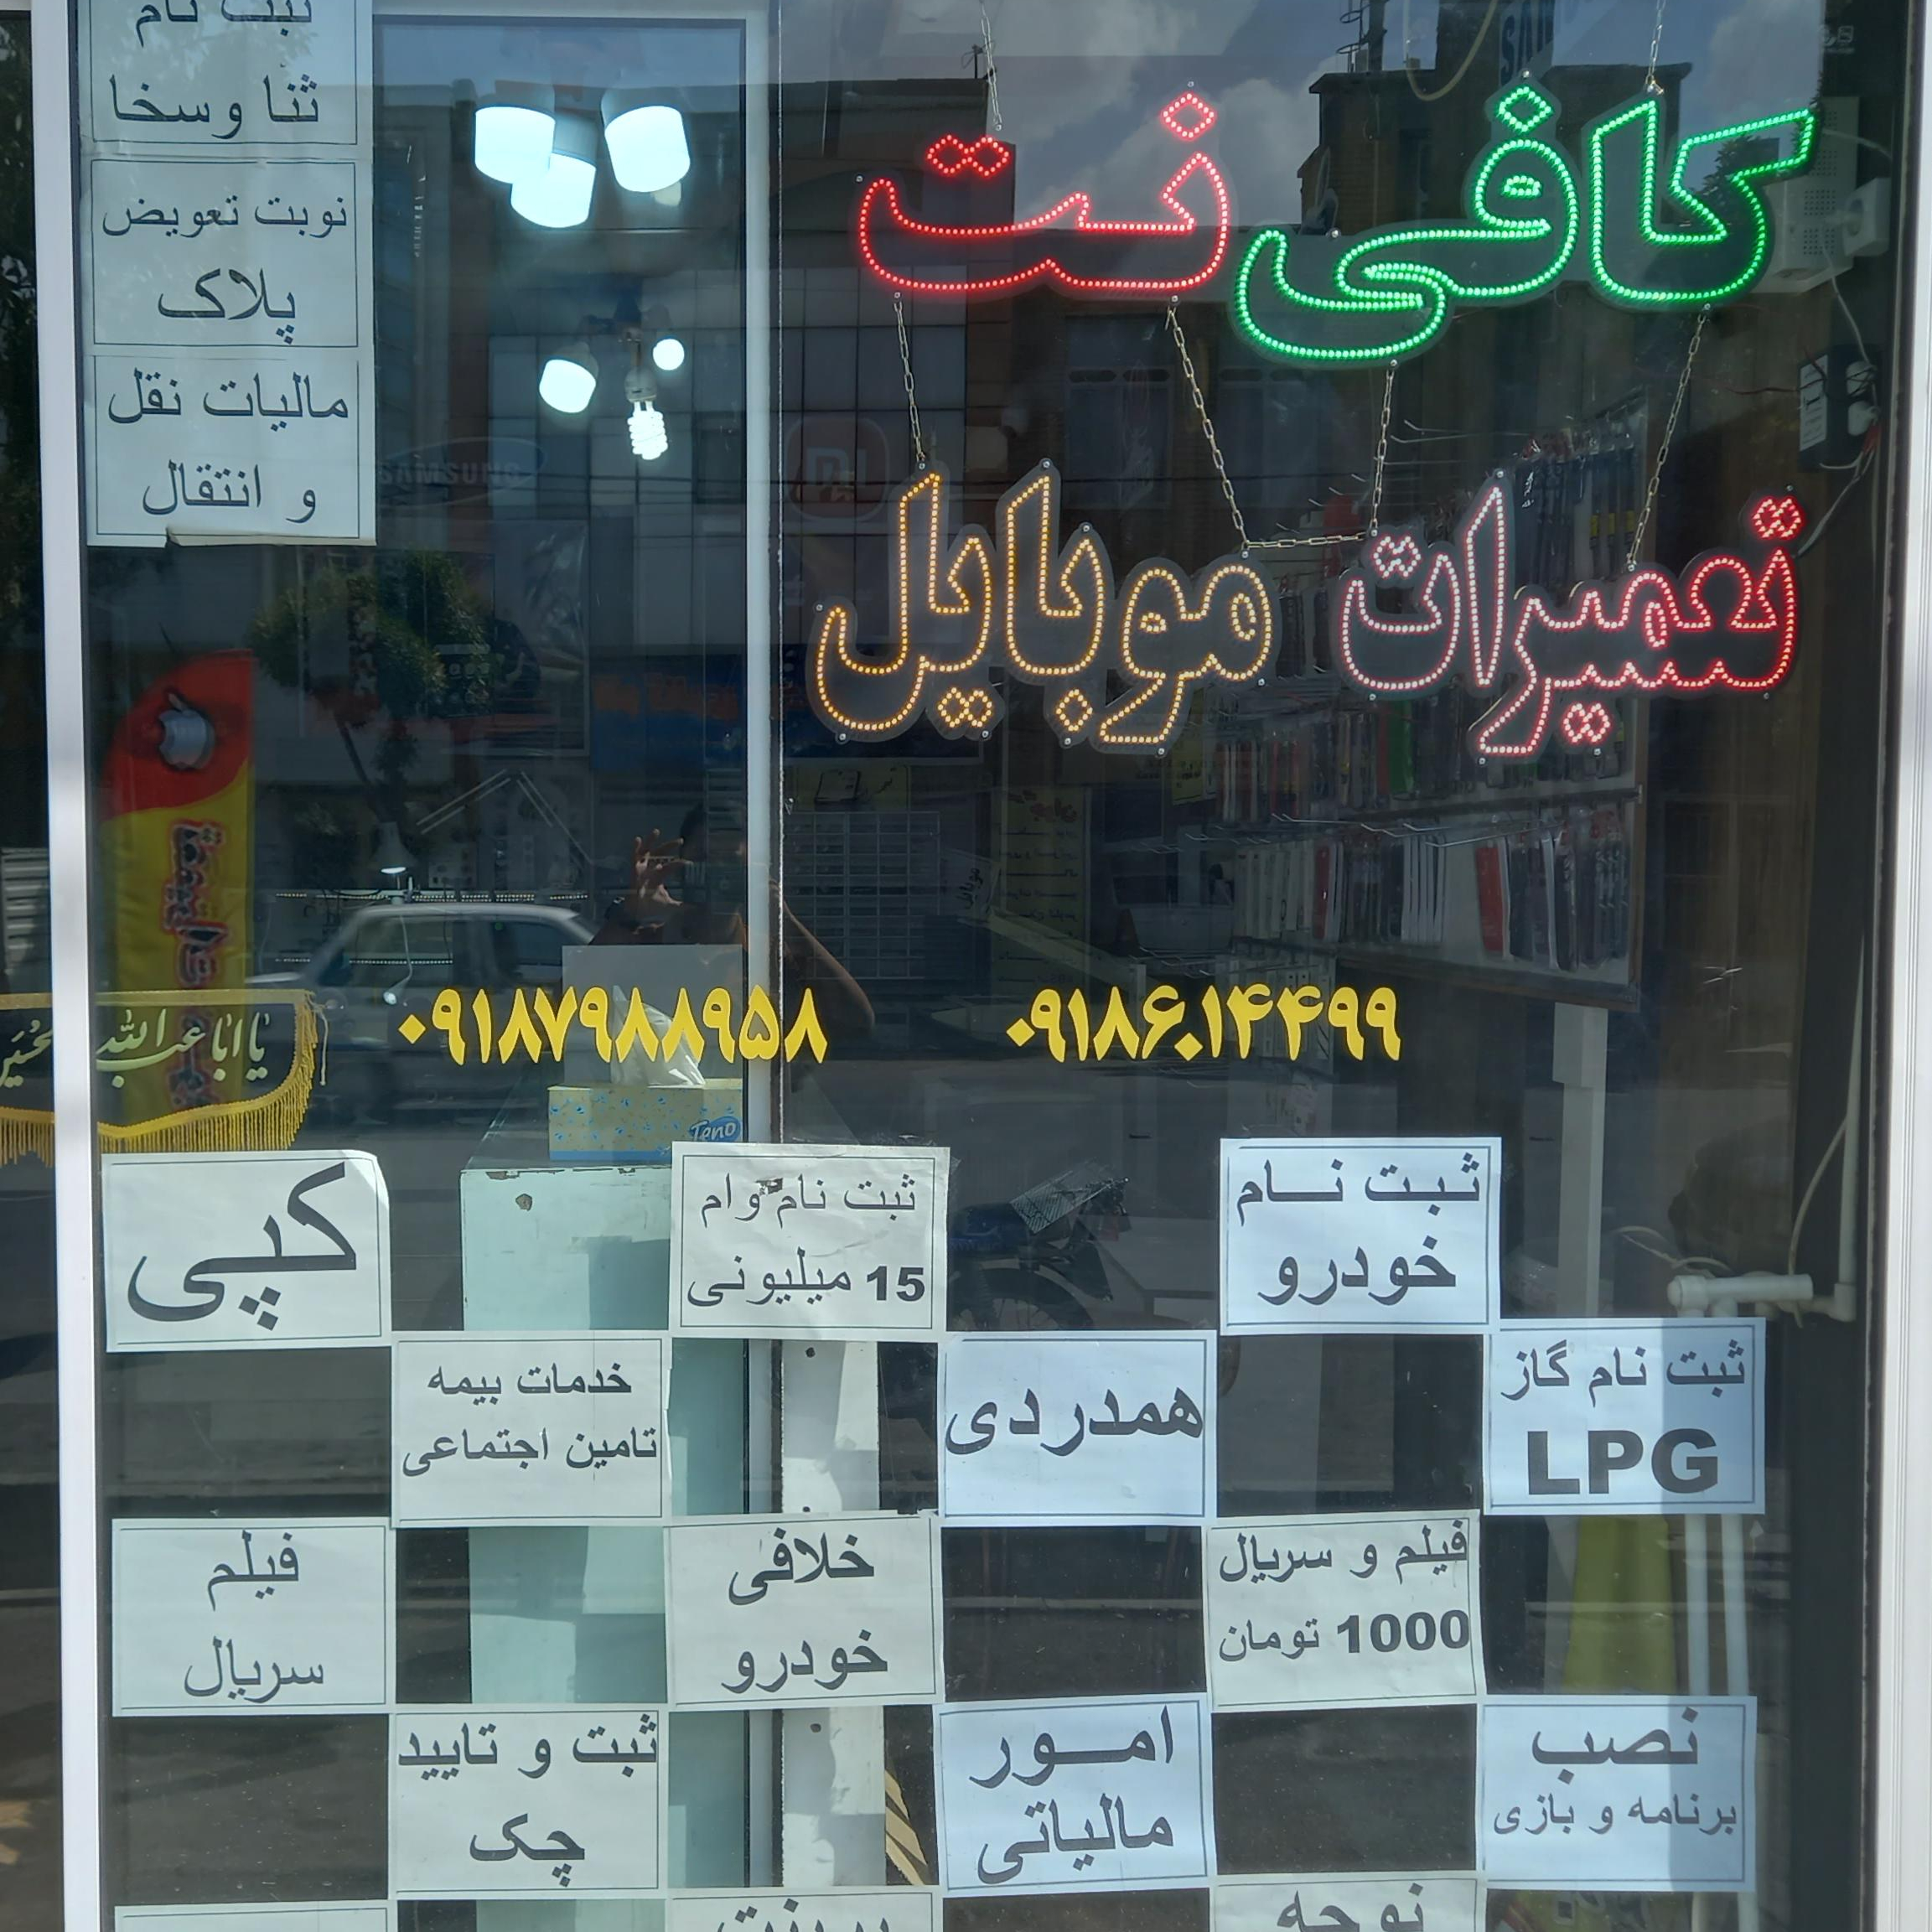 ثبت نام
ثنا وسخا
نوبت تعویض
پلاک
مالیات نقل
و انتقال
کافی نت
تعمیرات موبایل
SAMSUNG
۰۹۱۸۷۹۸۸۹۵۸
۰۹۱۸۶۰۱۴۴۹۹
یا اباعبدالله
Teno
ثبت نام
خودرو
ثبت نام وام
15 میلیونی
کپی
ثبت نام گاز
LPG
همدردی
خدمات بیمه
تامین اجتماعی
فیلم و سریال
1000 تومان
خلافی
خودرو
فیلم
سریال
نصب
برنامه و بازی
امور
مالیاتی
ثبت و تایید
چک
نوحه
پرینت